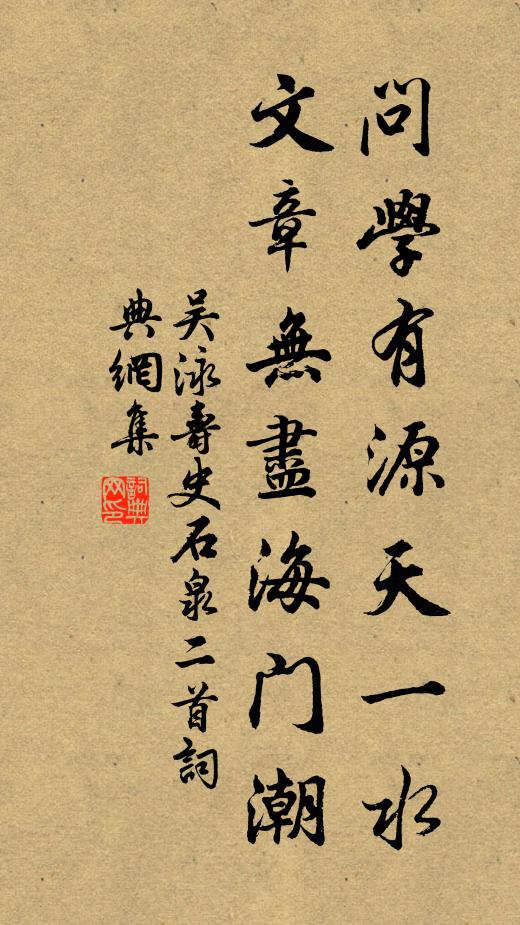 問學有源天一水
文章無盡海門潮
吴泳壽史石泉二首詞
典網集
詞典网印